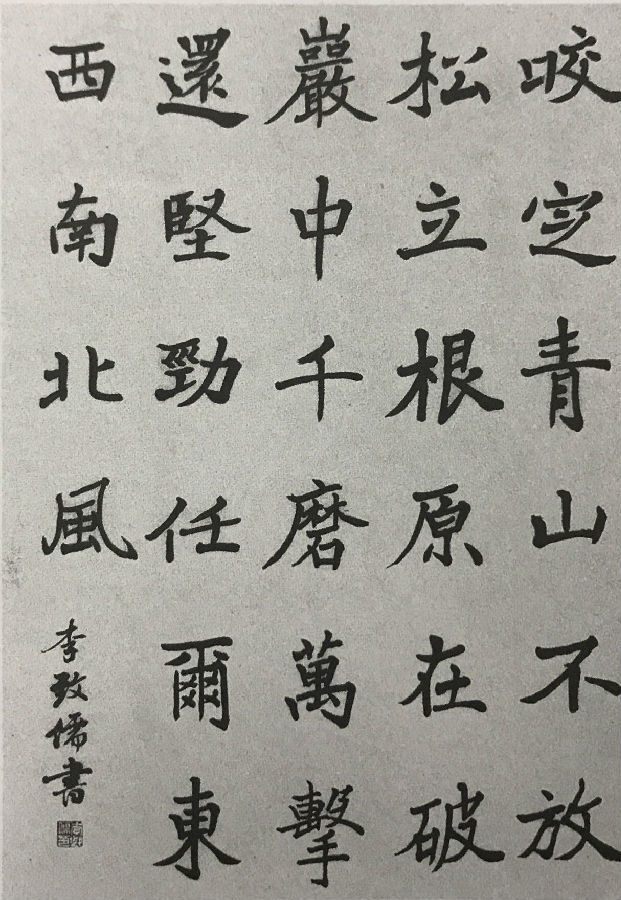 咬定青山不放
松立根原在破
巖中千磨萬擊
還堅勁任爾東
西南北風
李致儒書